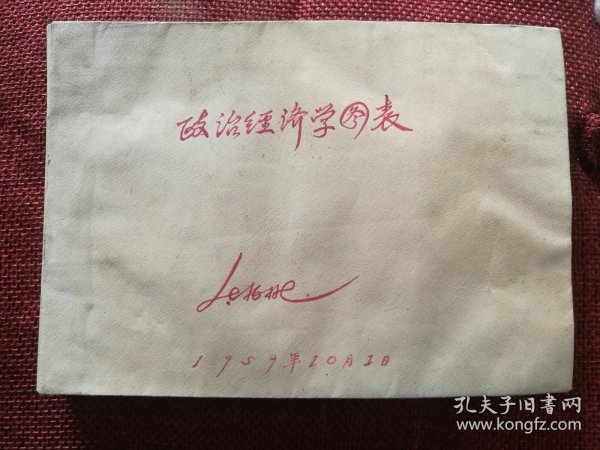 政治經济学图表
1959年10月1日
孔夫子旧書网
www.kongfz.com